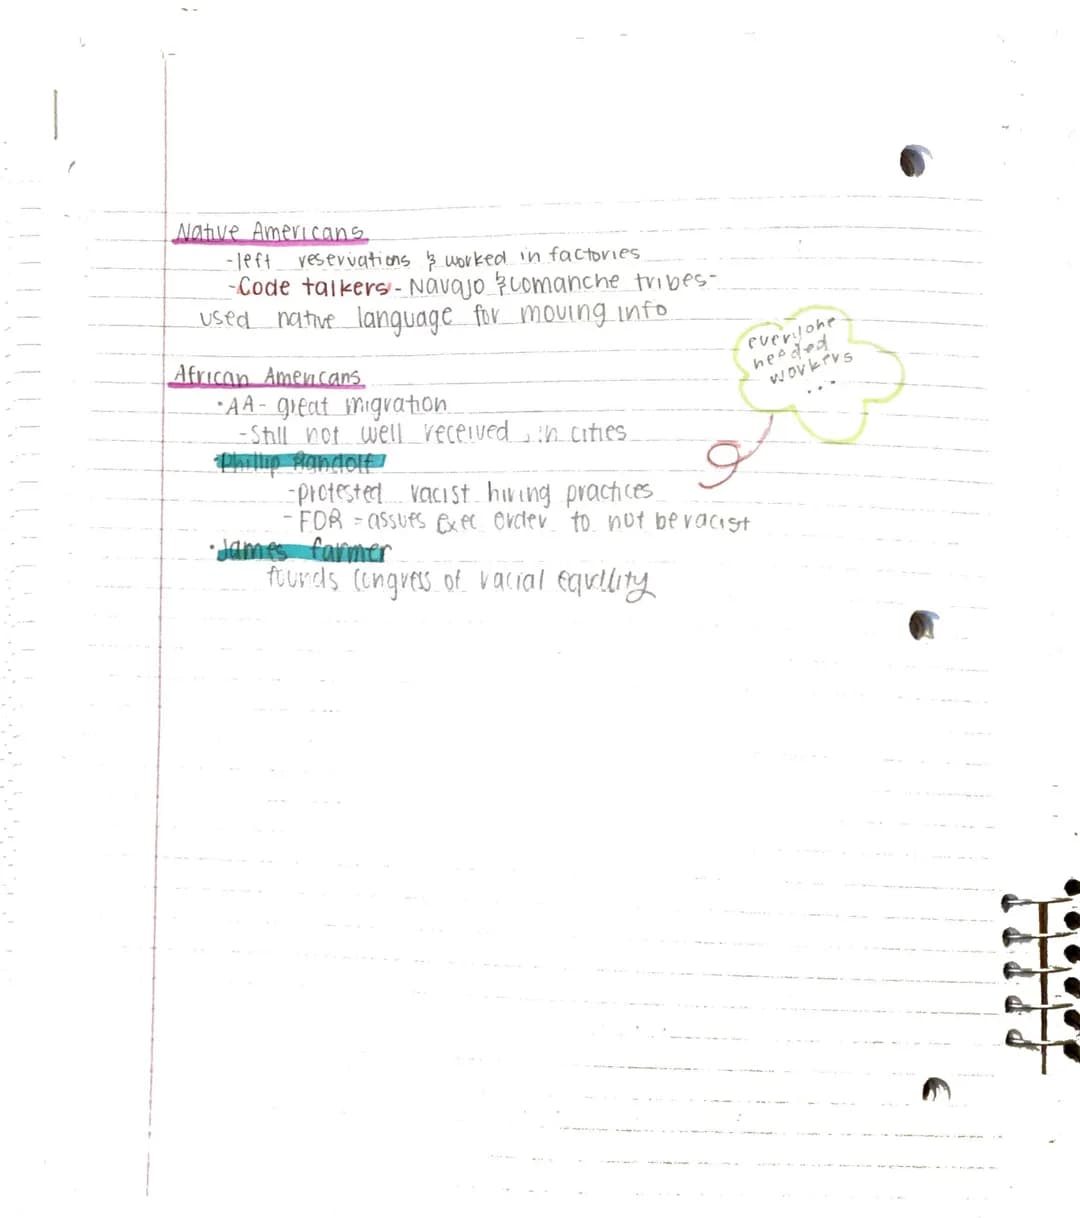 Native Americans
-left reservations & worked in factories
-Code talkers - Navajo & comanche tribes-
used native language for moving info
everyone
needed
workers
...
African Americans
·AA- great migration
-Still not well received in cities
·Phillip Randolf
-protested racist hiring practices
-FDR = assues Exec order to not be racist
·James farmer
founds Congress of racial Equility